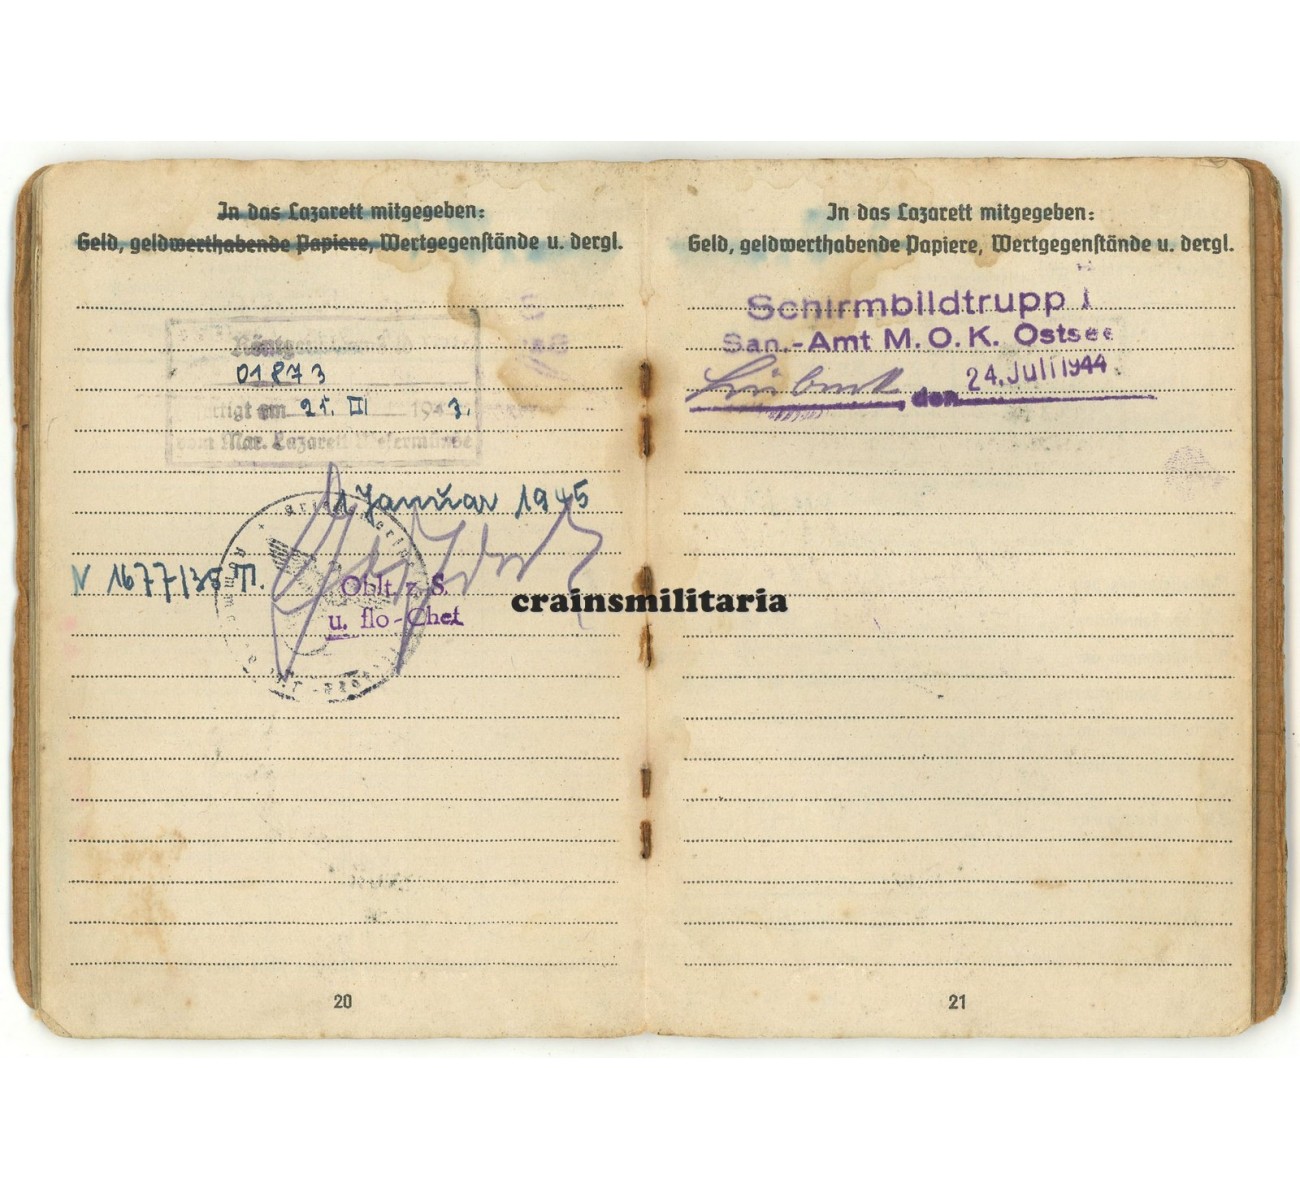 In das Lazarett mitgegeben:
Geld, geldwerthabende Papiere, Wertgegenstände u. dergl.
01873
21. III 194 3.
vom Mar. Lazarett Wesermünde
1 Januar 1945
N 1677/38 T.
Oblt. z. S.
u. flo-Chef
20
In das Lazarett mitgegeben:
Geld, geldwerthabende Papiere, Wertgegenstände u. dergl.
Schirmbildtrupp I
San.-Amt M.O.K. Ostsee
, den 24. Juli 1944
21
crainsmilitaria